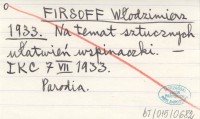 FIRSOFF Włodzimierz
1933. Na temat sztucznych
ułatwień wspinaczki. —
IKC 7 VII 1933.
Parodia.